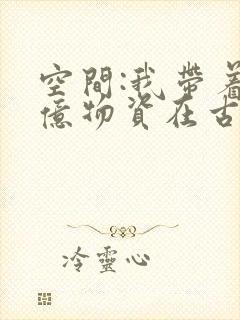 空間:我帶着
億物資在古
冷靈心